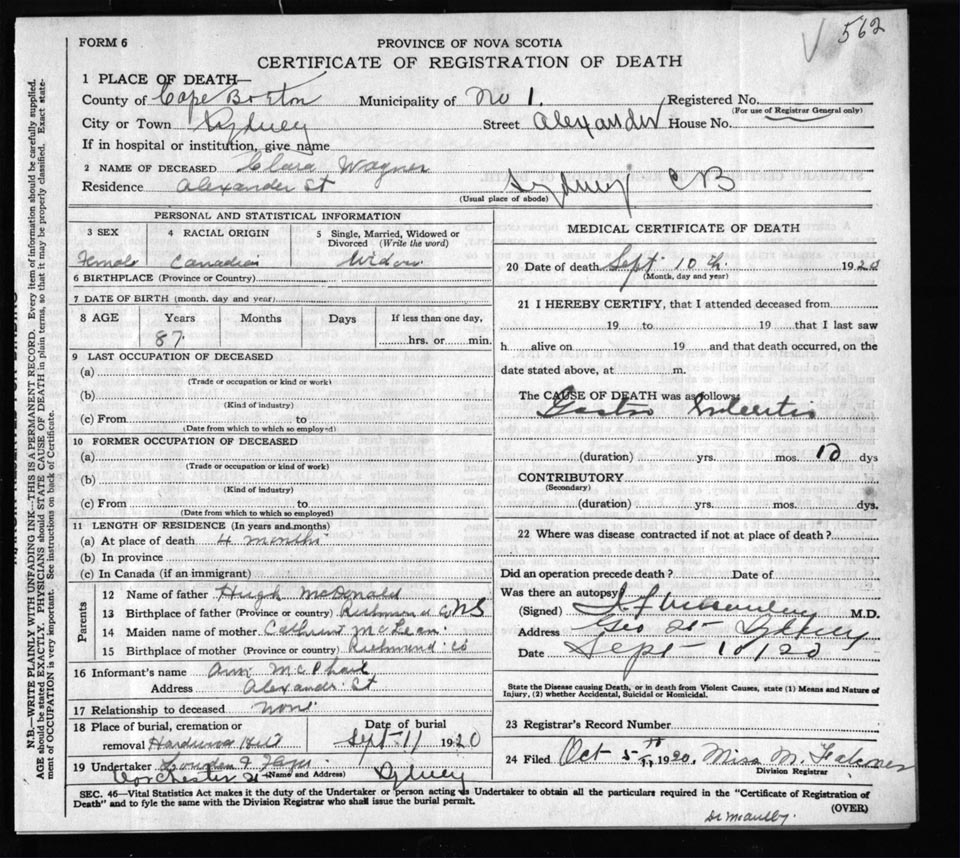 562
FORM 6
PROVINCE OF NOVA SCOTIA
CERTIFICATE OF REGISTRATION OF DEATH
1 PLACE OF DEATH—
County of Cape Breton Municipality of No 1. Registered No.
(For use of Registrar General only)
City or Town Sydney Street Alexander House No.
If in hospital or institution, give name
2 NAME OF DECEASED Clara Wagner
Residence Alexander St Sydney CB
(Usual place of abode)
PERSONAL AND STATISTICAL INFORMATION
3 SEX 4 RACIAL ORIGIN 5 Single, Married, Widowed or Divorced (Write the word)
Female Canadian Widow
6 BIRTHPLACE (Province or Country)
7 DATE OF BIRTH (month, day and year)
8 AGE Years Months Days If less than one day,
87 hrs. or min.
9 LAST OCCUPATION OF DECEASED
(a)
(Trade or occupation or kind or work)
(b)
(Kind of industry)
(c) From to
(Date from which to which so employed)
10 FORMER OCCUPATION OF DECEASED
(a)
(Trade or occupation or kind of work)
(b)
(Kind of industry)
(c) From to
(Date from which to which so employed)
11 LENGTH OF RESIDENCE (In years and months)
(a) At place of death 4 months
(b) In province
(c) In Canada (if an immigrant)
Parents
12 Name of father Hugh McDonald
13 Birthplace of father (Province or country) Richmond Co NS
14 Maiden name of mother Catherine McLean
15 Birthplace of mother (Province or country) Richmond Co
16 Informant's name Ann McPhail
Address Alexander St
17 Relationship to deceased None
18 Place of burial, cremation or Date of burial
removal Hardwood Hill Sept 11 1920
19 Undertaker
(Name and Address)
Dorchester St Sydney
MEDICAL CERTIFICATE OF DEATH
20 Date of death Sept 10th 1920
(Month, day and year)
21 I HEREBY CERTIFY, that I attended deceased from
19 to 19 that I last saw
h alive on 19 and that death occurred, on the
date stated above, at m.
The CAUSE OF DEATH was as follows:
Gastro Enteritis
(duration) yrs. mos. 10 dys
CONTRIBUTORY
(Secondary)
(duration) yrs. mos. dys.
22 Where was disease contracted if not at place of death?
Did an operation precede death? Date of
Was there an autopsy
(Signed) M.D.
Address Geo St Sydney
Date Sept 10/20
State the Disease causing Death, or in death from Violent Causes, state (1) Means and Nature of
Injury, (2) whether Accidental, Suicidal or Homicidal.
23 Registrar's Record Number
24 Filed Oct 5th 1920. Miss M.
Division Registrar
SEC. 46—Vital Statistics Act makes it the duty of the Undertaker or person acting as Undertaker to obtain all the particulars required in the "Certificate of Registration of
Death" and to fyle the same with the Division Registrar who shall issue the burial permit.
(OVER)
N.B.—WRITE PLAINLY WITH UNFADING INK—THIS IS A PERMANENT RECORD. Every item of information should be carefully supplied.
AGE should be stated EXACTLY. PHYSICIANS should STATE CAUSE OF DEATH in plain terms, so that it may be properly classified. Exact state-
ment of OCCUPATION is very important. See instructions on back of Certificate.